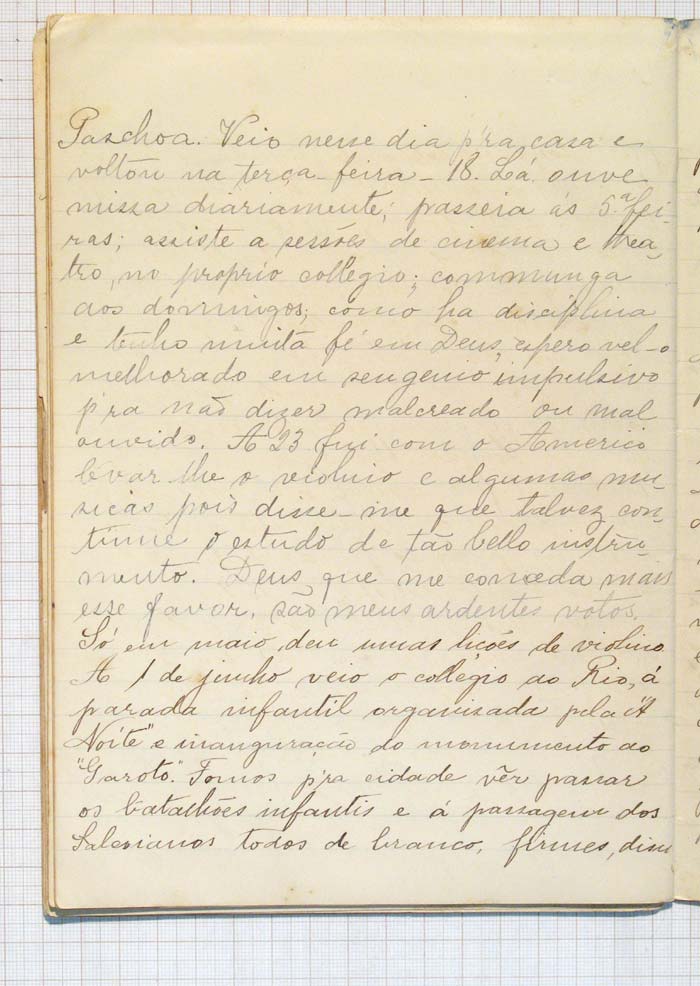 Paschoa. Veio nesse dia p'ra casa e
voltou na terça-feira - 18. Lá ouve
missa diariamente; passeia ás 5.ªs fei-
ras; assiste a sessões de cinema e thea-
tro, no proprio collegio; communga
aos domingos; como ha disciplina
e tenho muita fé em Deus, espero vel-o
melhorado em seu genio impulsivo
p'ra não dizer malcreado ou mal
ouvido. A 23 fui com o Americo
levar-lhe o violino e algumas mu-
sicas pois disse-me que talvez con-
tinue o estudo de tão bello instru-
mento. Deus que me conceda mais
esse favor, são meus ardentes votos.
Só em maio deu umas lições de violino.
A 1 de junho veio o collegio ao Rio, á
parada infantil organisada pela "A
Noite" e inauguração do monumento ao
"Garoto". Fomos p'ra cidade vêr passar
os batalhões infantis e á passagem dos
Salesianos todos de branco, firmes, disci